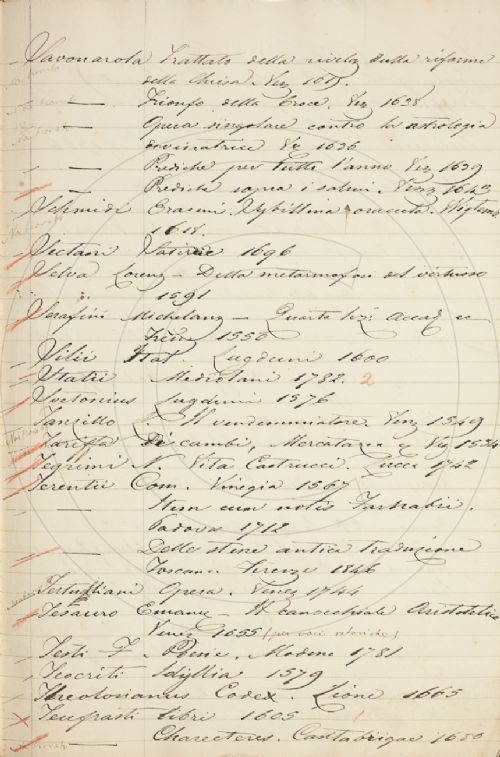 Savonarola Trattato della rivelaz. della riforme
della Chiesa. Ven 1615.
— Trionfo della Croce. Ven 1638
— Opera singolare contro la astrologia
divinatrice Ve 1636
— Prediche per tutti l'anno Ven 1639
— Prediche sopra i salmi. Venez 1643
Schmidt Erasmi. Sybillina oracula.
1618.
Sectani Satirae 1696
Selva Lorenz — Della metamorfosi del virtuoso
1591
Serafini Michelang — Quarta lez: Accad ec
Firenz 1550
Silii Ital Lugduni 1600
Statii Mediolani 1782. 2
Svetonius Lugduni 1576
Tansillo L. Il vendemmiatore. Venz 1549
Tariffa Di cambi, Mercatanzia e Ven 1534
Tegrimi N Vita Castrucci. Lucca 1742
Terentii Com. Vinegia 1567
— Item cum notis Farnabii.
Padova 1712
— Delle antica traduzione
Toscana. Firenze 1846
Tertulliani Opera. Venez 1744
Tesauro Emanu — Il canocchiale Aristotelico
Venez 1655 (per voci retoriche)
Testi F. Poesie. Modena 1781
Teocriti Idyllia 1579
Theodosianus Codex. Lione 1665
Teufrasti libri 1605
Charecteres. Cantabrigae 1650